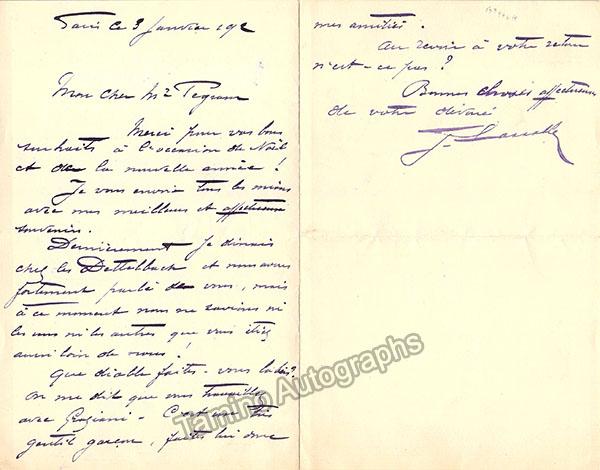 Paris ce 3 Janvier 192
Mon cher Mr
Merci pour vos bons
souhaits à l'occasion de Noël
et de la nouvelle année !
Je vous envoie tous les miens
avec mes meilleurs et affectueux
souvenirs.
Dernièrement je dinais
chez les Dettelbach et nous avons
fortement parlé de vous, mais
à ce moment nous ne savions ni
les uns ni les autres que vous étiez
aussi loin de nous !
Que diable faites-vous là-bas ?
On me dit que vous travaillez
avec Graziani - C'est un très
gentil garçon, faites lui donc
mes amitiés.
Au revoir à votre retour
n'est-ce pas ?
Bonnes choses affectueuses
de votre dévoué
Tamino Autographs